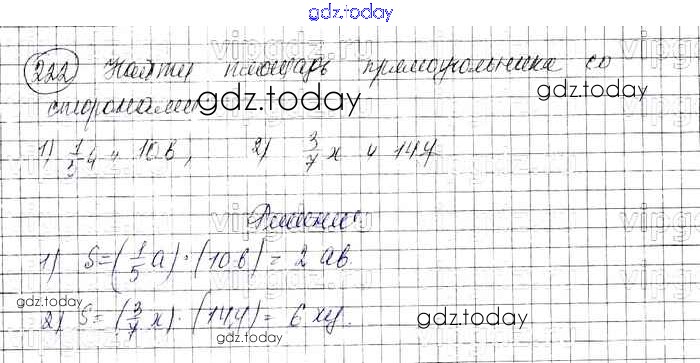 gdz.today
vipgdz.ru
222 Найти площадь прямоугольника со
сторонами
gdz.today
gdz.today
1) 1/5 a и 10b, 2) 3/7 x и 14y
Решение
1) S=(1/5 a)·(10b)=2ab.
gdz.today
2) S=(3/7 x)·(14y)=6xy.
gdz.today
gdz.today